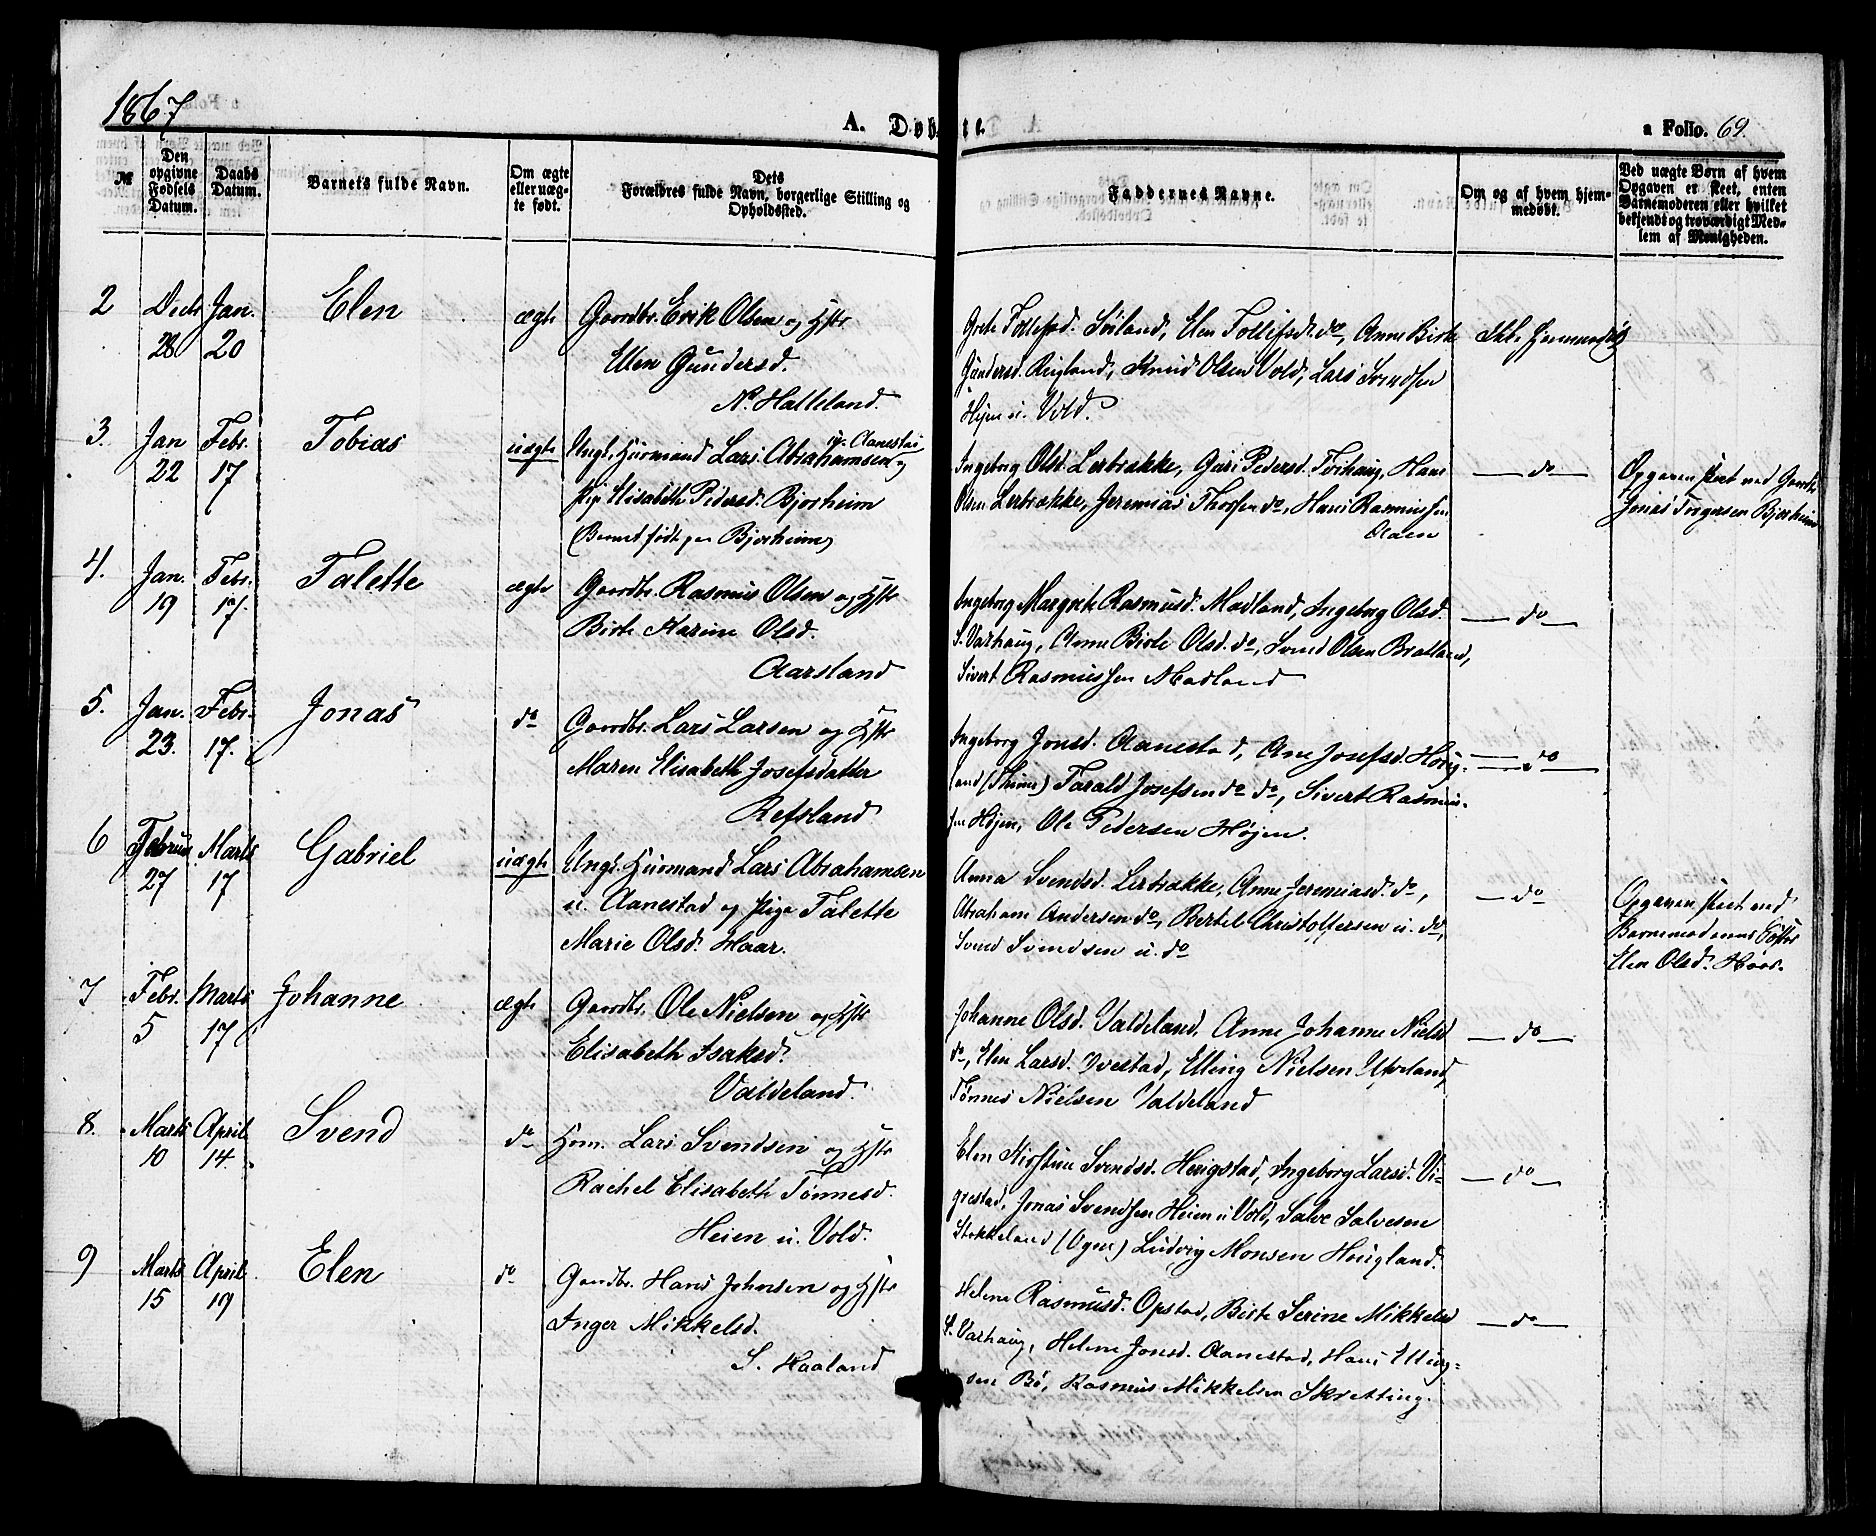 1867
A. Døbte.
a Folio. 69.
№
Den opgivne Fødsels Datum.
Daabs Datum.
Barnets fulde Navn.
Om ægte eller uægte født.
Dets Forældres fulde Navn, borgerlige Stilling og Opholdssted.
Faddernes Navne.
Om og af hvem hjemmedøbt.
Ved uægte Børn af hvem Opgaven er skeet, enten Barnemoderen eller hvilket bekjendt og troværdigt Medlem af Menigheden.
2
Decb. 28
Jan. 20
Elen
ægte
Gaardbr. Erik Olsen og Hstr
Elen Gundersd.
N. Hatleland.
Grete Tollefsd. Søiland, Elen Tollefsd. do, Anne Birte
Gundersd. Reigland, Knud Olsen Vold, Lars Svendsen
Højen u. Vold.
Ikke hjemmedøbt
3.
Jan 22
Febr. 17
Tobias
uægte
Ungk. Huusmand Lars Abrahamsen u. Aanestad og
Pige Elisabeth Pedersd. Bjorheim
(Barnet født paa Bjorheim)
Ingeborg Olsd. Lerbrække, Guri Pedersd. Tvihaug, Hans
Olsen Lerbrække, Jeremias Thorsen do, Hans Rasmussen
Aaen
— do —
Opgaven skeet ved Gaardbr.
Jonas Torgersen Bjorheim
4.
Jan. 19
Febr. 17.
Talette
ægte
Gaardbr. Rasmus Olsen og Hstr
Birte Karine Olsd.
Aarsland
Ingeborg Margrete Rasmusd. Madland, Ingeborg Olsd.
S. Varhaug, Anne Birte Olsd. do, Svend Olsen Bratland,
Sivert Rasmussen Madland
— do —
5.
Jan. 23.
Febr. 17.
Jonas
do
Gaardbr. Lars Larsen og Hstr
Maren Elisabeth Josefsdatter
Refsland
Ingeborg Jonsd. Aanestad, Ane Josefsd. Hørig-
land (Thime) Tarald Josefsen do do, Sivert Rasmus-
sen Højen, Ole Pedersen Højen.
— do —
6
Februar 27
Marts 17
Gabriel
uægte
Ungk. Huusmand Lars Abrahamsen
u. Aanestad og Pige Talette
Marie Olsd. Haar.
Anna Svendsd. Lerbrække, Anne Jeremiasd. do,
Abraham Andersen do, Bertel Christoffersen u. do,
Svend Svendsen u. do
— do —
Opgaven skeet ved
Barnemoderens Søster
Elen Olsd. Haar.
7
Febr. 5
Marts 17
Johanne
ægte
Gaardbr. Ole Nielsen og Hstr
Elisabeth Isaksd.
Valdeland.
Johanne Olsd. Valdeland, Anne Johanne Nielsd
do, Elen Larsd. Ivestad, Elling Nielsen Utveland,
Tønnes Nielsen Valdeland
— do —
8.
Marts 10
April 14.
Svend
do
Hsm. Lars Svendsen og Hstr
Rachel Elisabeth Tønnesd.
Heien u. Vold.
Elen Kirstine Svendsd. Herigstad, Ingeborg Larsd. Vi-
grestad, Jonas Svendsen Heien u Vold, Salve Salvesen
Stokkeland (Ogne) Ludvig Monsen Haugland.
— do —
9
Marts 15
April 19
Elen
do
Gaardbr. Hans Johnsen og Hstr
Inger Mikkelsd.
S. Haaland
Helene Rasmusd. Opstad, Birte Serine Mikkelsd
S. Varhaug, Helene Jonsd. Aanestad, Hans Elling-
sen Bø, Rasmus Mikkelsen Skretting.
— do —